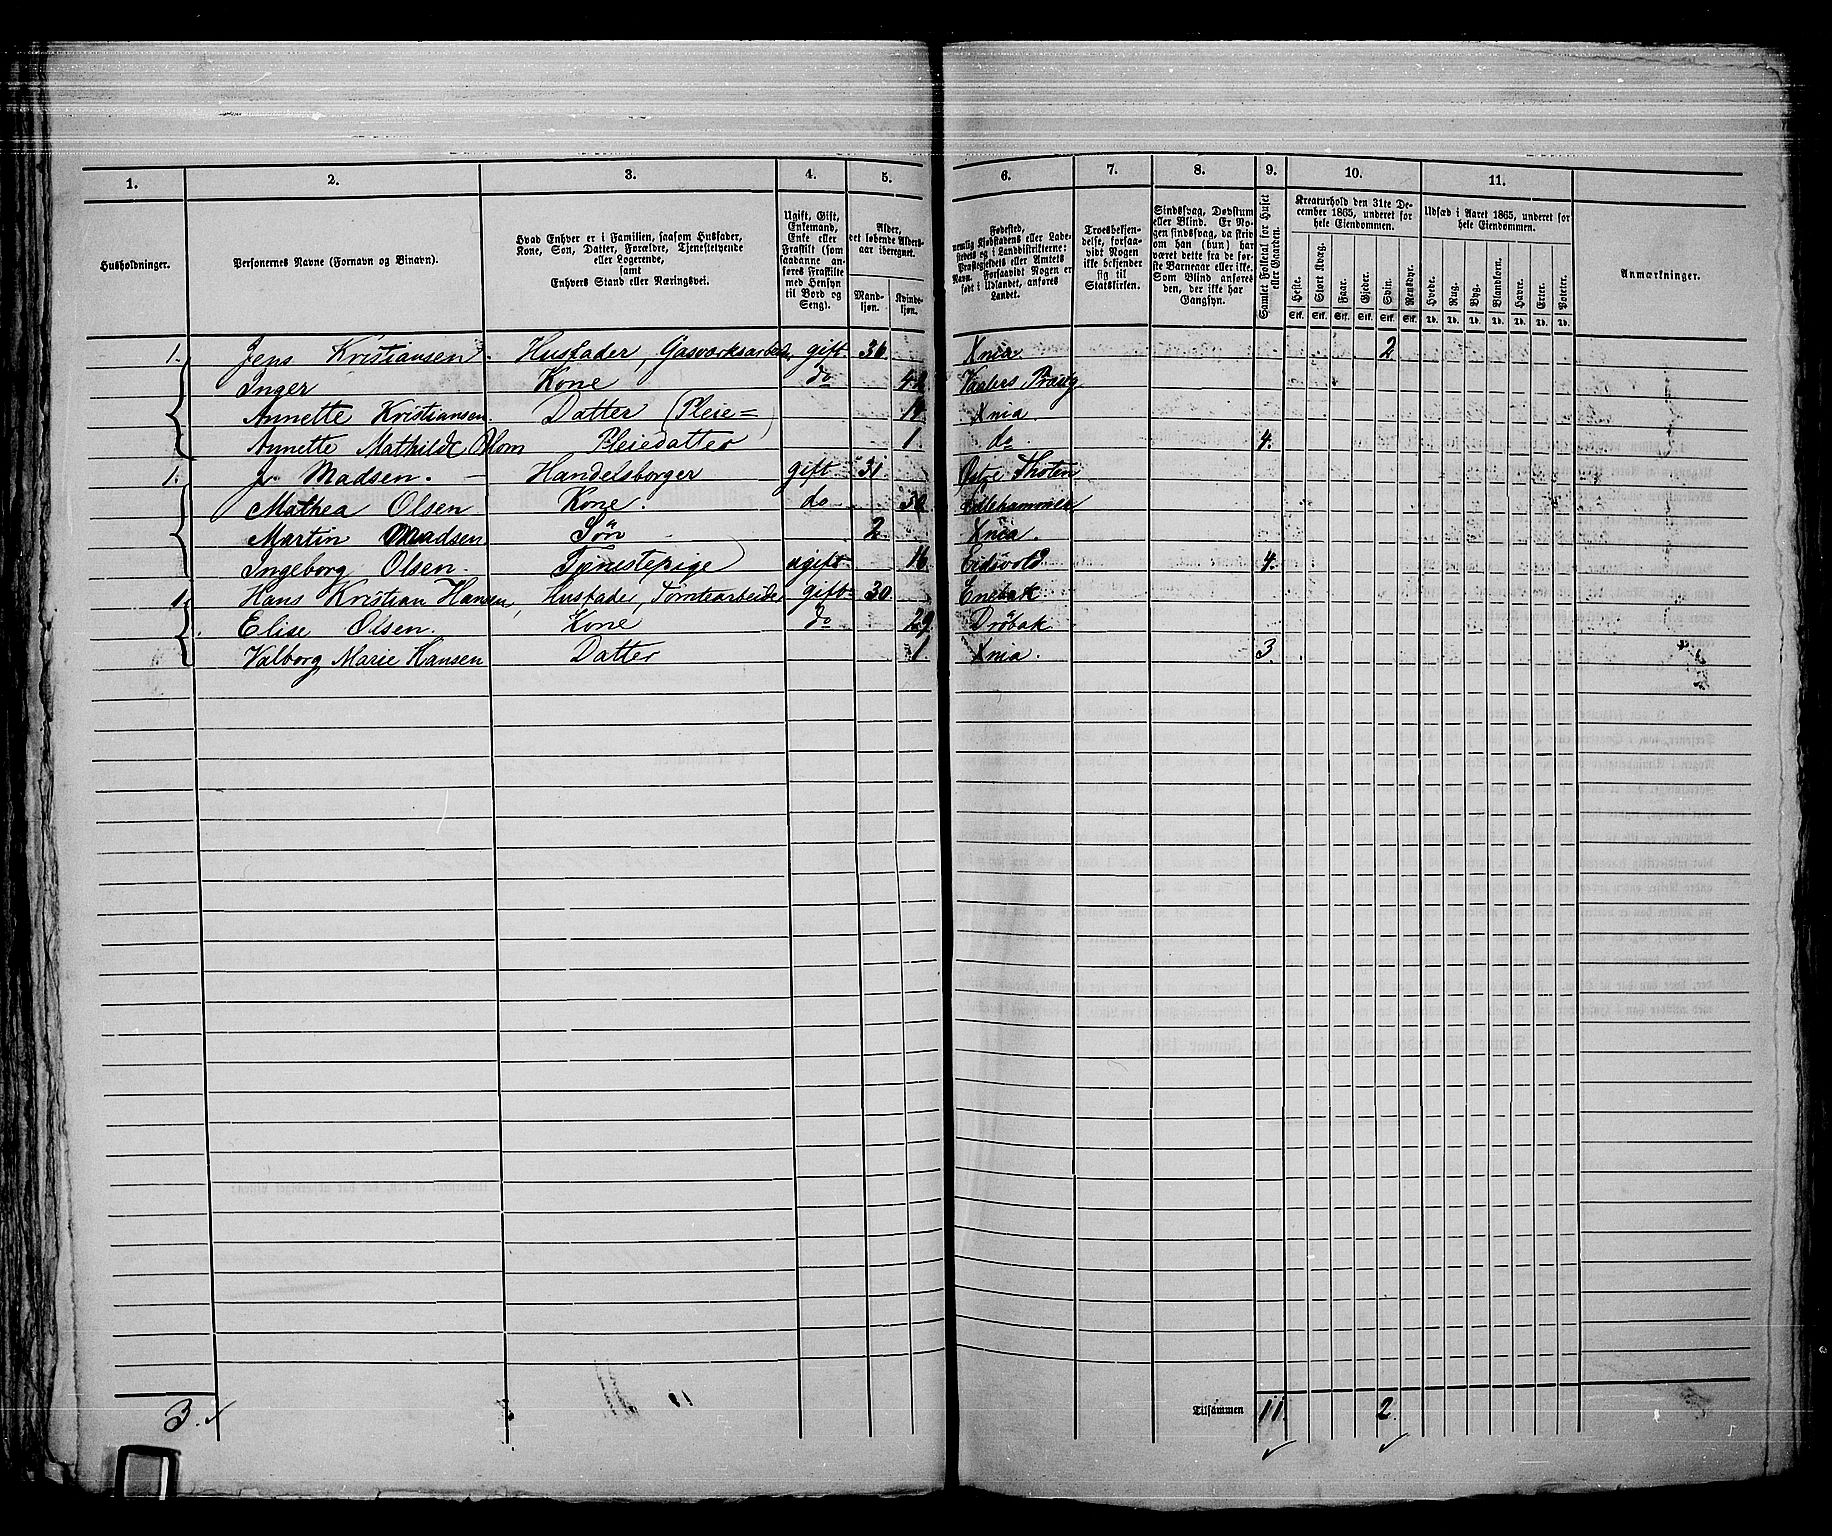 1. 2. 3. 4. 5. 6. 7. 8. 9. 10. 11.
Husholdninger.
Personernes Navne (Fornavn og Binavn).
Hvad Enhver er i Familien, saasom Husfader,
Kone, Søn, Datter, Forældre, Tjenestetyende
eller Logerende,
samt
Enhvers Stand eller Næringsvei.
Ugift, Gift,
Enkemand,
Enke eller
Fraskilt (som
saadanne an-
føres Fraskilte
med Hensyn
til Bord og
Seng).
Alder,
det løbende Alders-
aar iberegnet.
Mand-
kjøn.
Kvinde-
kjøn.
Fødested,
nemlig Kjøbstadens eller Lade-
stedets og i Landdistrikterne:
Præstegjeldets eller Amtets
Navn. Forsaavidt Nogen er
født i Udlandet, anføres
Landet.
Troesbekjen-
delse, forsaa-
vidt Nogen
ikke bekjender
sig til
Statskirken.
Sindssvag, Døvstum
eller Blind. Er No-
gen sindssvag, da skriv
om han (hun) har
været dette fra de før-
ste Barneaar eller ikke.
Som Blind anføres
den, der ikke har
Gangsyn.
Samlet Folketal for Huset
eller Gaarden.
Kreaturhold den 31te De-
cember 1865, underet for
hele Eiendommen.
Heste. Stort Kvæg. Faar. Gjeder. Svin. Rensdyr.
Stk. Stk. Stk. Stk. Stk. Stk.
Udsæd i Aaret 1865, underet for
hele Eiendommen.
Hvede. Rug. Byg. Blandkorn. Havre. Erter. Poteter.
Td. Td. Td. Td. Td. Td. Td.
Anmærkninger.
1. Jens Kristiansen. Husfader, Gasværksarbeider gift 36 Xnia 2
Inger Kone do Vaalers Præstg
Annette Kristiansen. Datter (Pleie=) 14 Xnia.
Annette Mathilde Blom Pleiedatter 1 do 4.
1. J. Madsen. Handelsborger gift 31 Østre Thoten
Mathea Olsen Kone. do 30 Lillehammer
Martin Madsen Søn 2 Xnia.
Ingeborg Olsen. Tjenestepige ugift 16 Eidsvold 4.
1. Hans Kristian Hansen, Husfader, Tomtearbeider gift 30 Enebak
Elise Olsen. Kone do 29 Drøbak
Valborg Marie Hansen Datter 1 Xnia. 3.
3. Tilsammen 11. 2.